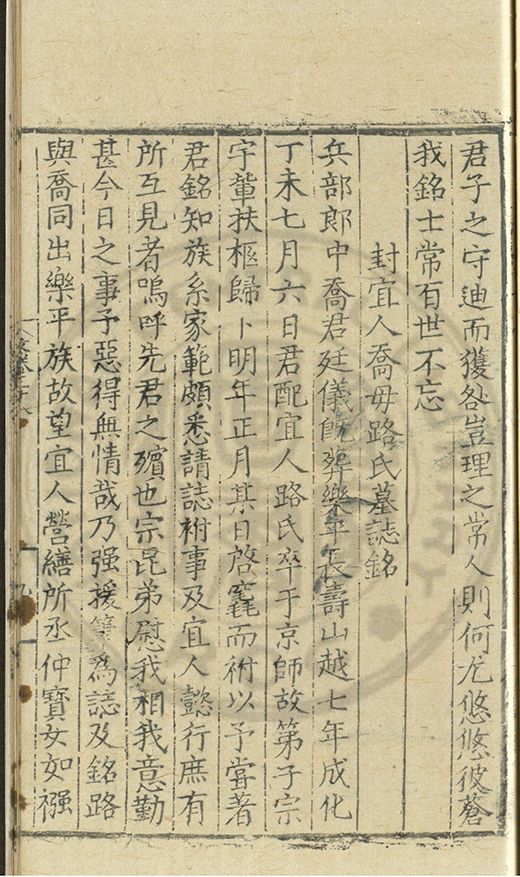 君子之守迪而獲咎豈理之常人則何尤悠悠彼蒼
我銘士常百世不忘
封宜人喬母路氏墓誌銘
兵部郎中喬君廷儀既葬樂平長壽山越七年成化
丁未七月六日君配宜人路氏卒于京師故第子宗
宇輩扶柩歸卜明年正月其日啓窆而祔以予嘗著
君銘知族系家範頗悉請誌祔事及宜人懿行庶有
所互見者嗚呼先君之殯也宗昆弟慰我相我意勤
甚今日之事予惡得無情哉乃强援筆為誌及銘路
與喬同出樂平族故望宜人營繕所丞仲寶女如襁